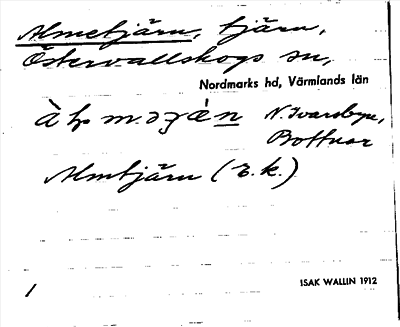 Almetjärn, tjärn,
Östervallskogs sn,
Nordmarks hd, Värmlands län
N. Ivarsbyn,
Bottnar
Almtjärn (E.k.)
1
ISAK WALLIN 1912